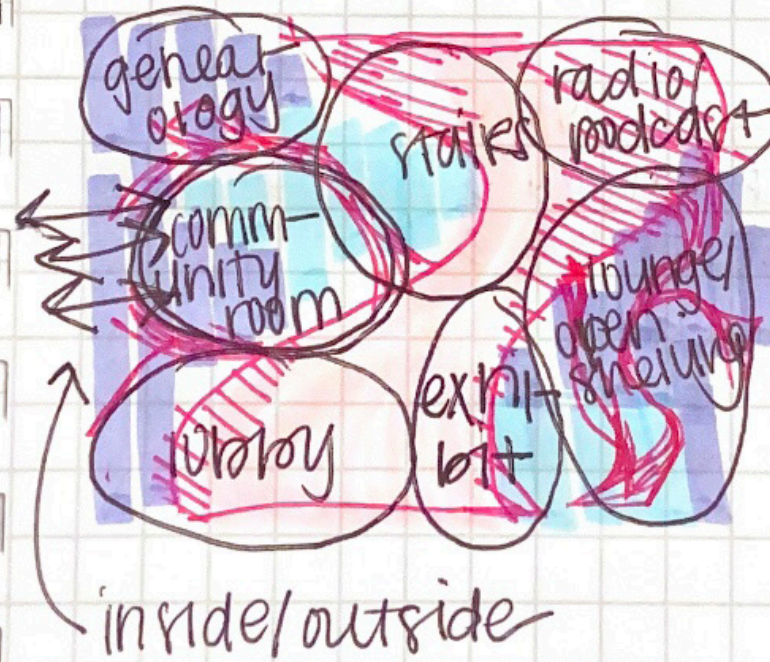 geneal-
ology
stairs
radio/
podcast
comm-
unity
room
lounge/
open
shelving
exhi-
bit
lobby
inside/outside